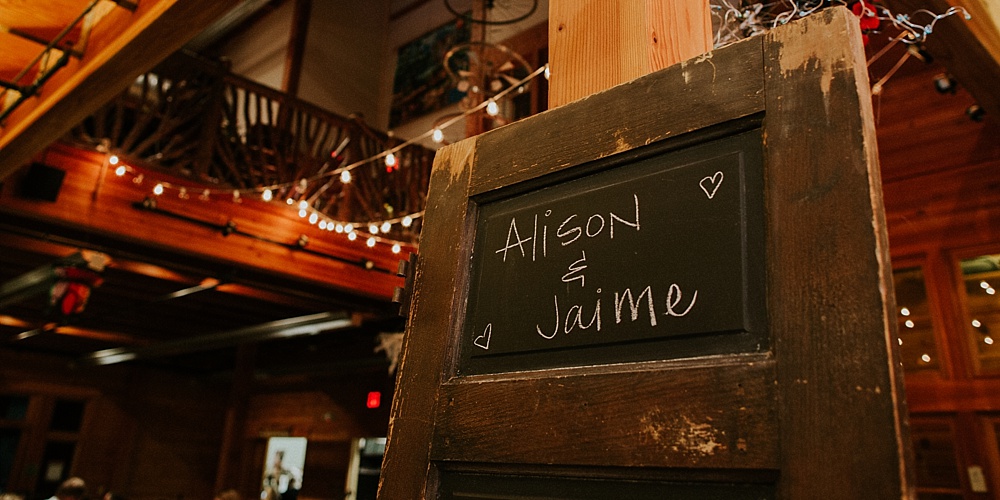 Alison
&
Jaime